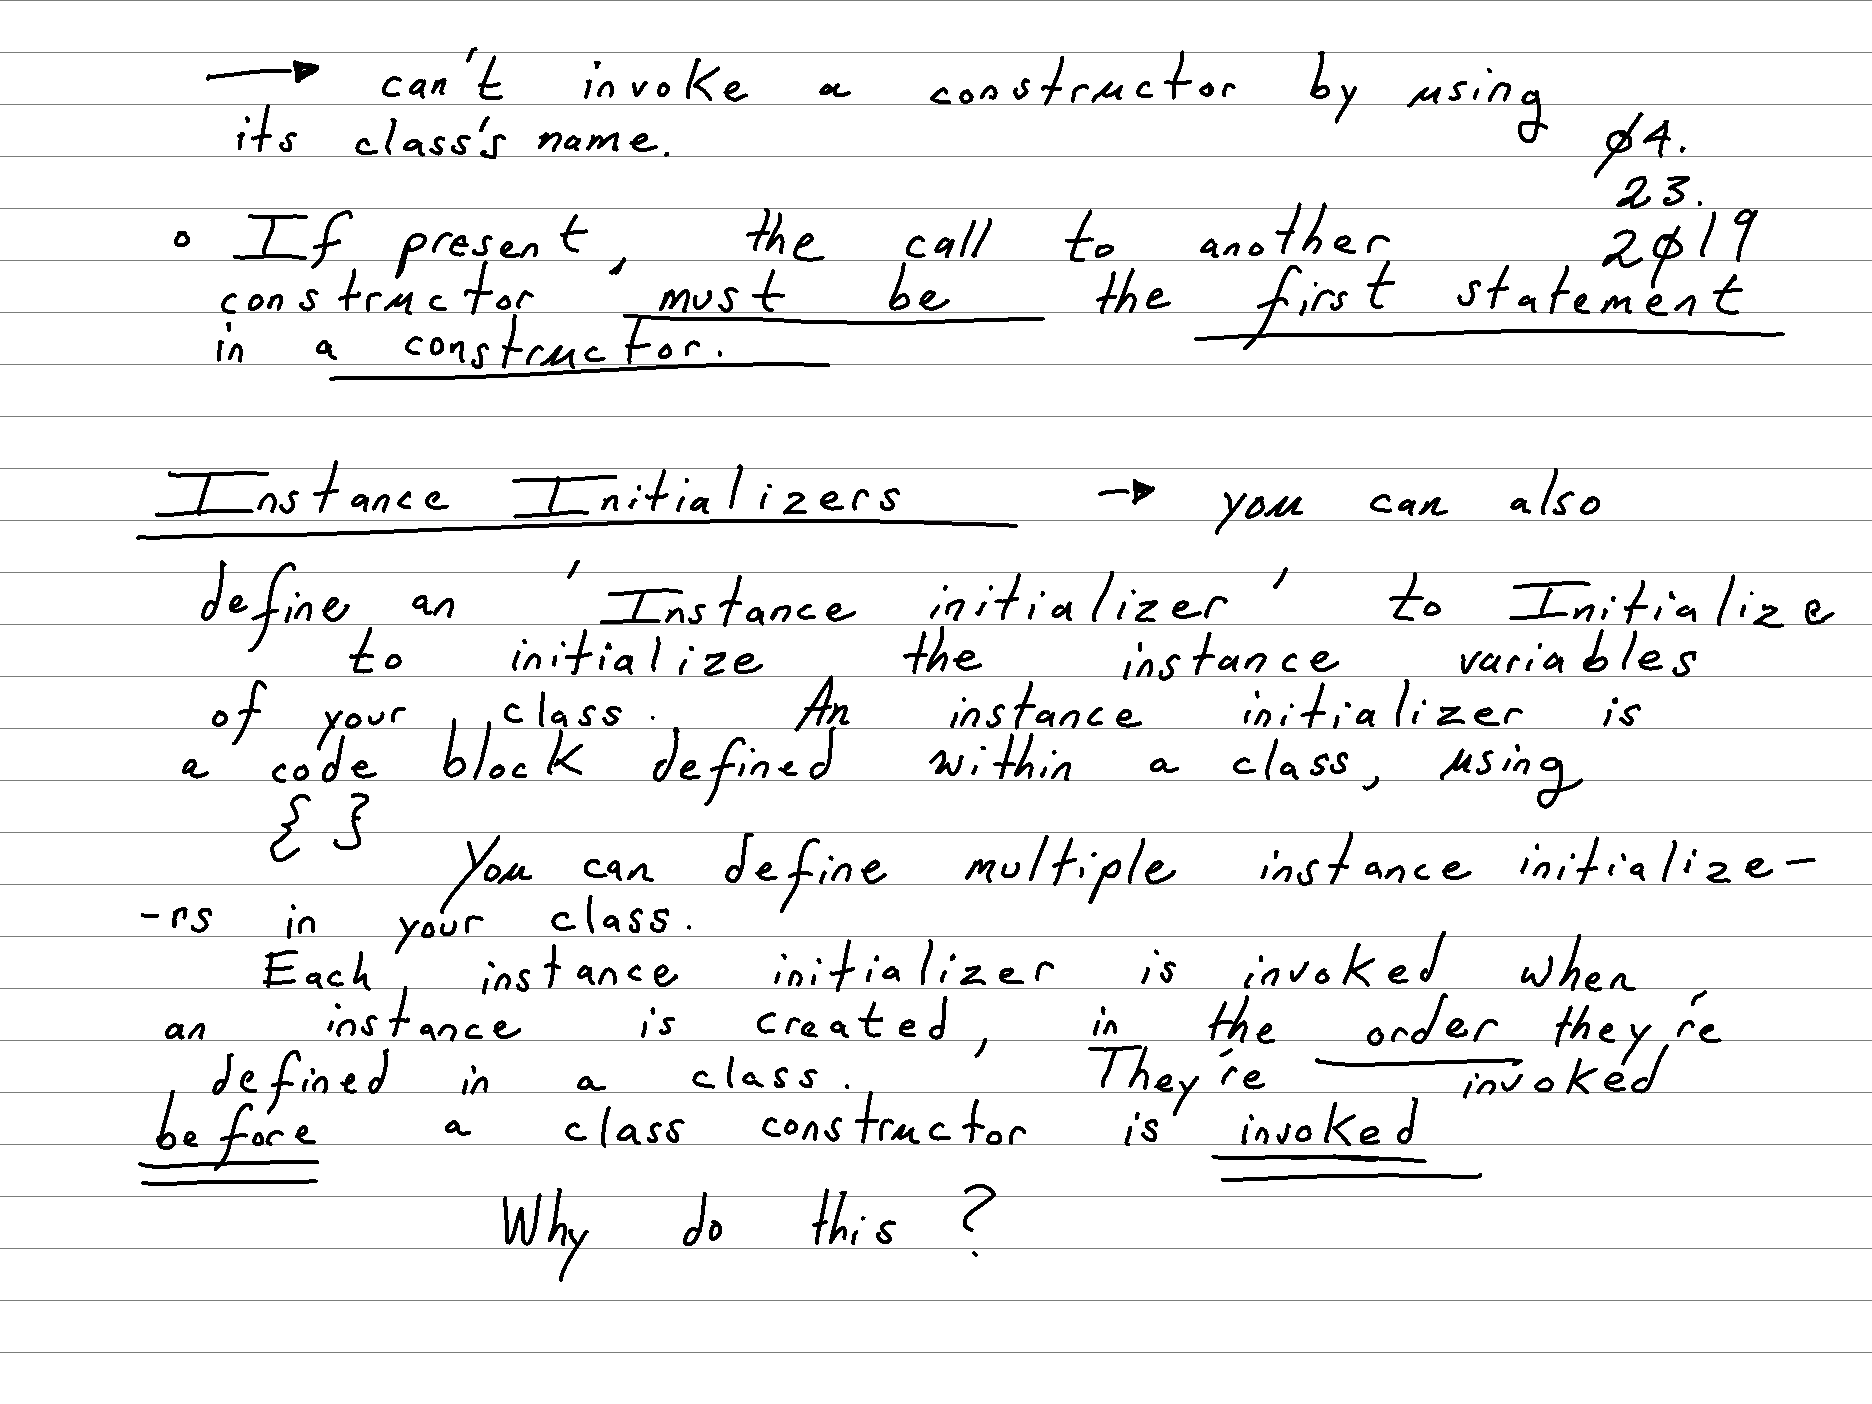 → can't invoke a constructor by using
its class's name.
Ø4.
23.
2Ø19
∘ If present, the call to another
constructor must be the first statement
in a constructor.
Instance Initializers → you can also
define an 'Instance initializer' to Initialize
to initialize the instance variables
of your class. An instance initializer is
a code block defined within a class, using
{ }
You can define multiple instance initialize-
-rs in your class.
Each instance initializer is invoked when
an instance is created, in the order they're
defined in a class. They're invoked
before a class constructor is invoked
Why do this ?